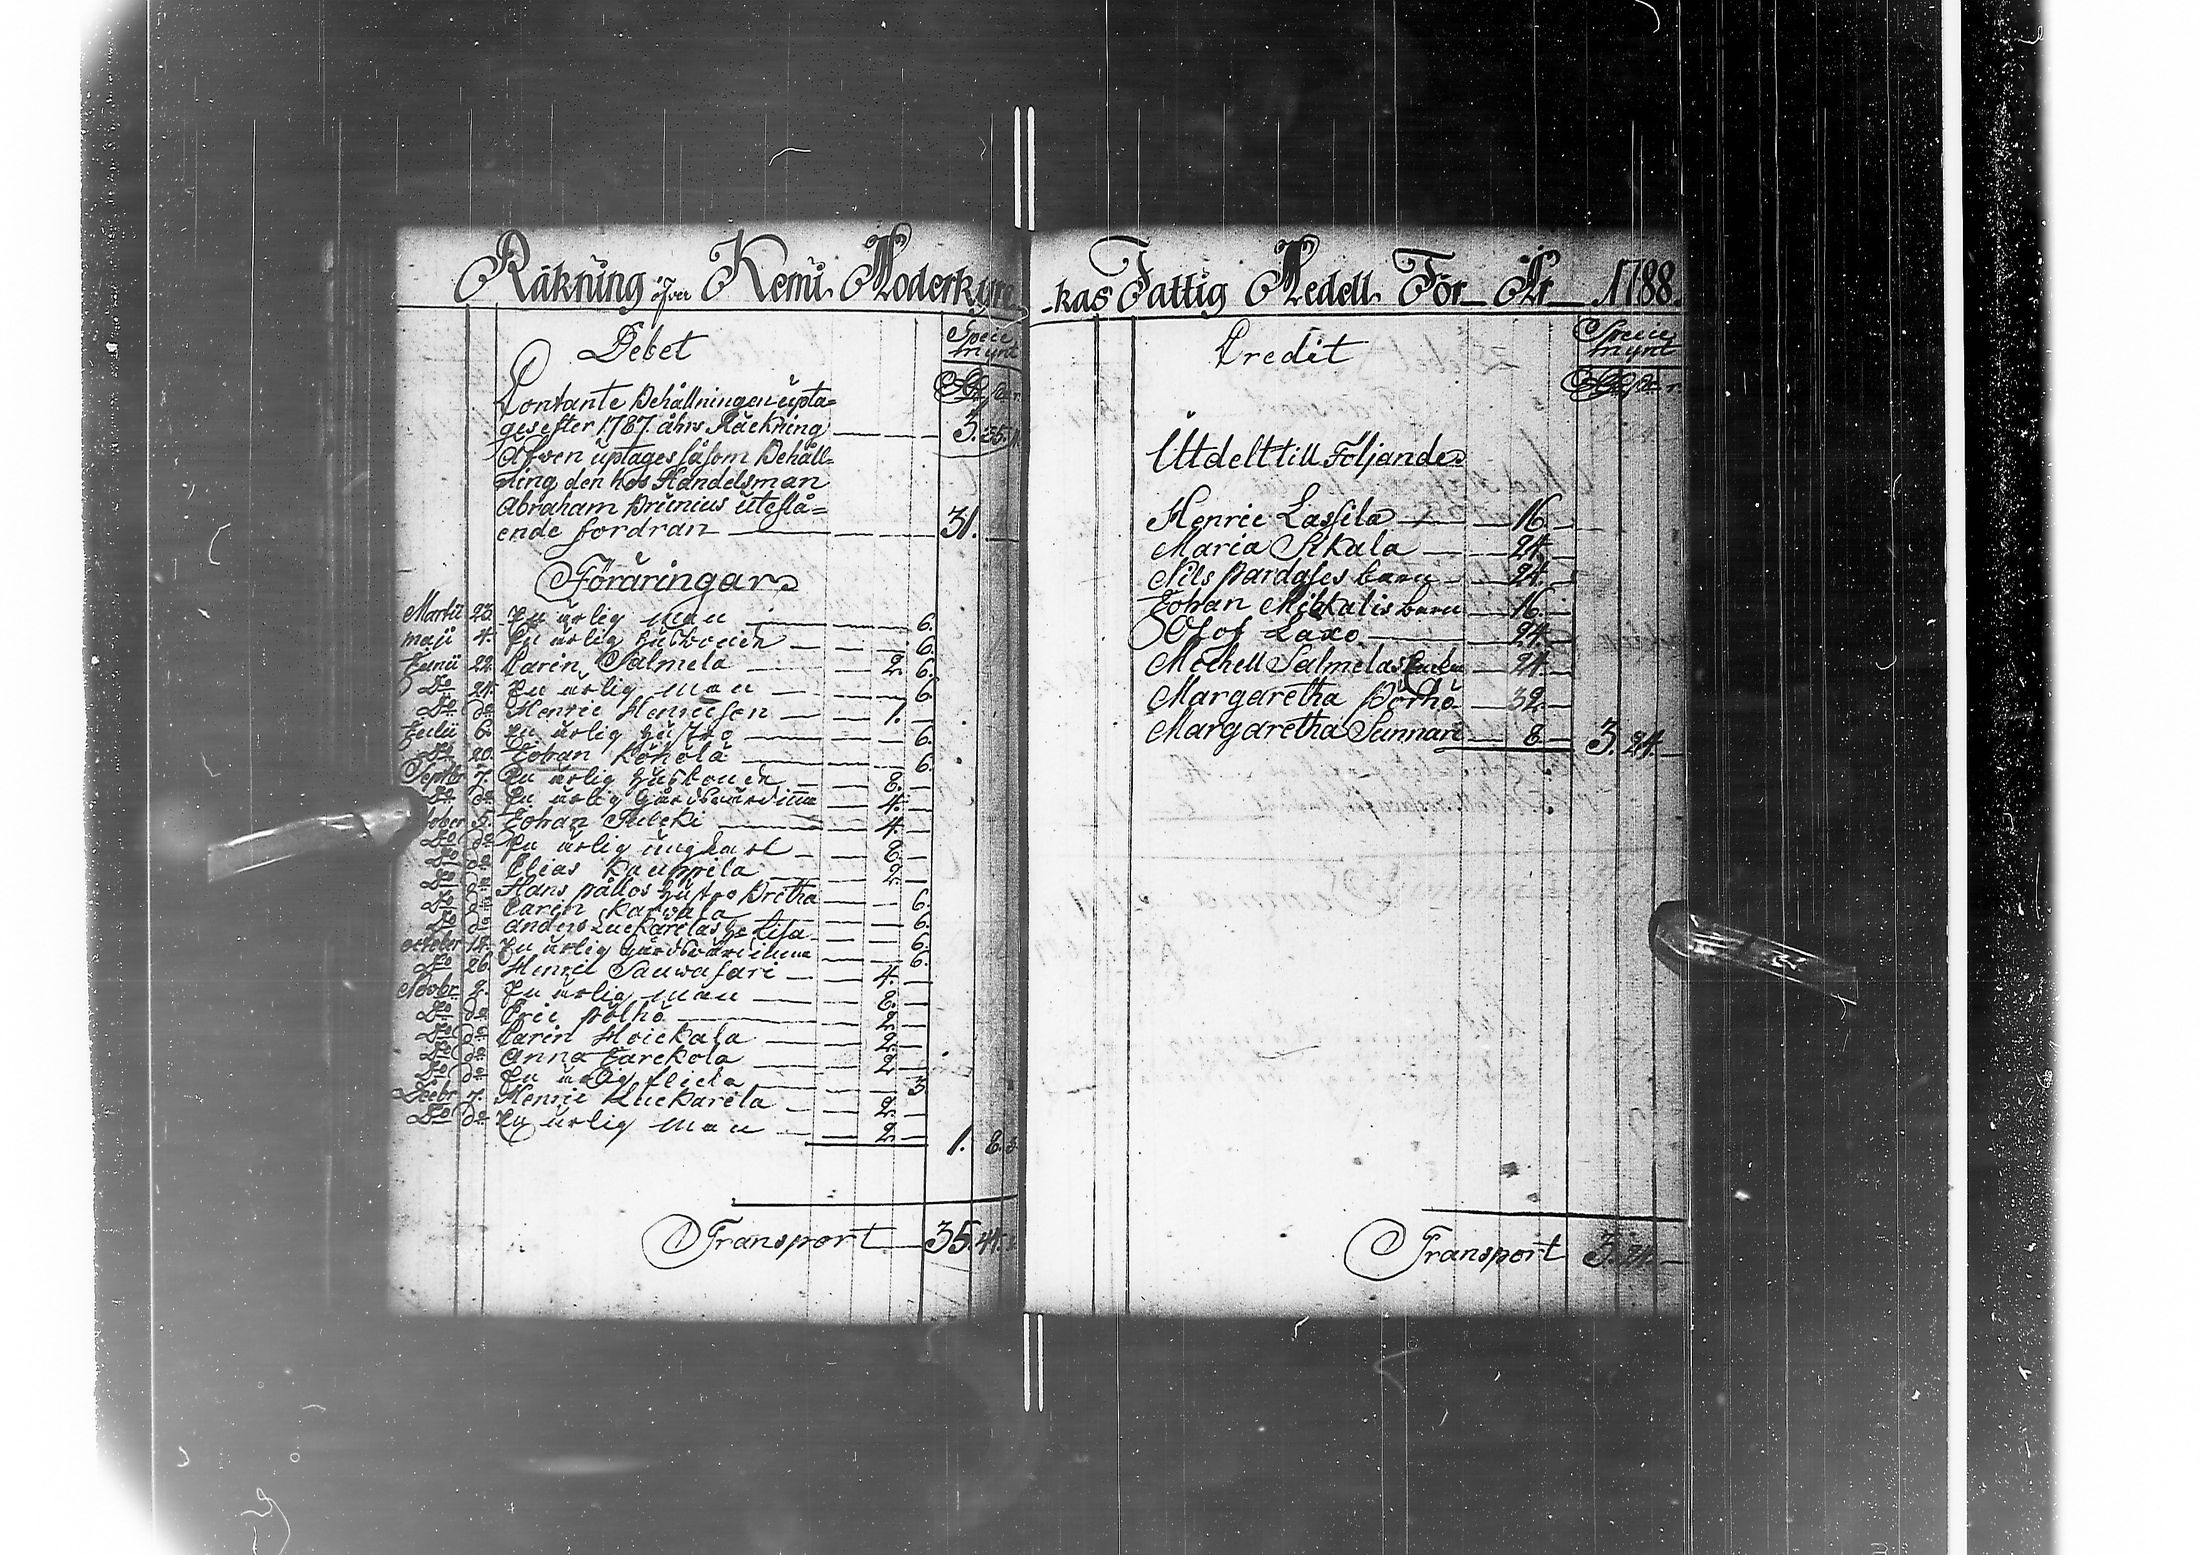 Räkning öfver Kemi Moderkyre
Debet
Specie
mynt
Contante Behållningen upta=
ges efter 1787 åhrs Räckning — 3. 35.
Äfwen uptages såsom Behåll=
ning den hos Handelsman
Abraham Brunius utestå=
ende fordran — 31. —
Föräringar
Martii 23. En ärlig man — 6.
maji 4. En ärlig husbonde — 6.
Junii 22. Carin Salmela — 2. 6.
Do 24. En ärlig man — 6.
Do do Henric Henricson — 1. —
Julii 6. En ärlig hustro — 6.
Do 20. Johan Könölä — 6.
Septbr 7. En ärlig husbonde — 8. —
Do do En ärlig Gårdswärdinna — 4. —
5. Johan — 4. —
Do do En ärlig ungkarl — 8. —
Do do Elias Kauppila — 2. —
Do do Hans pållos hustro Bretha — 6.
Do do Carin Karwala — 6.
Do do Anders Luckarelas h. Lisa — 6.
october 12. En ärlig Gårdswärdinna — 6.
Do 26. Henric Sauwasari — 4. —
Novbr 2. En ärlig man — 8. —
Do do Eric pölhö — 2. —
Do do Carin Hoickala — 2. —
Do do Anna Jarckola — 2 —
Do do En ärlig flicka — 3
Decbr 7. Henric Luckarela — 2. —
Do do En ärlig man — 2 — 1. 8.
Transport — 35. 44.
-kas Fattig Medell För År 1788.
Credit
Specie
mynt
Utdelt till Följande
Henric Lassila — 16. —
Maria Sikala — 24. —
Nils pardases barn — 24. —
Johan Mikkalis barn — 16. —
Olof Laxo — 24. —
Mickell Salmelas Enka — 24. —
Margaretha Pörhö — 32. —
Margaretha Sunnari — 8. — 3. 24. —
Transport 3. 24. —